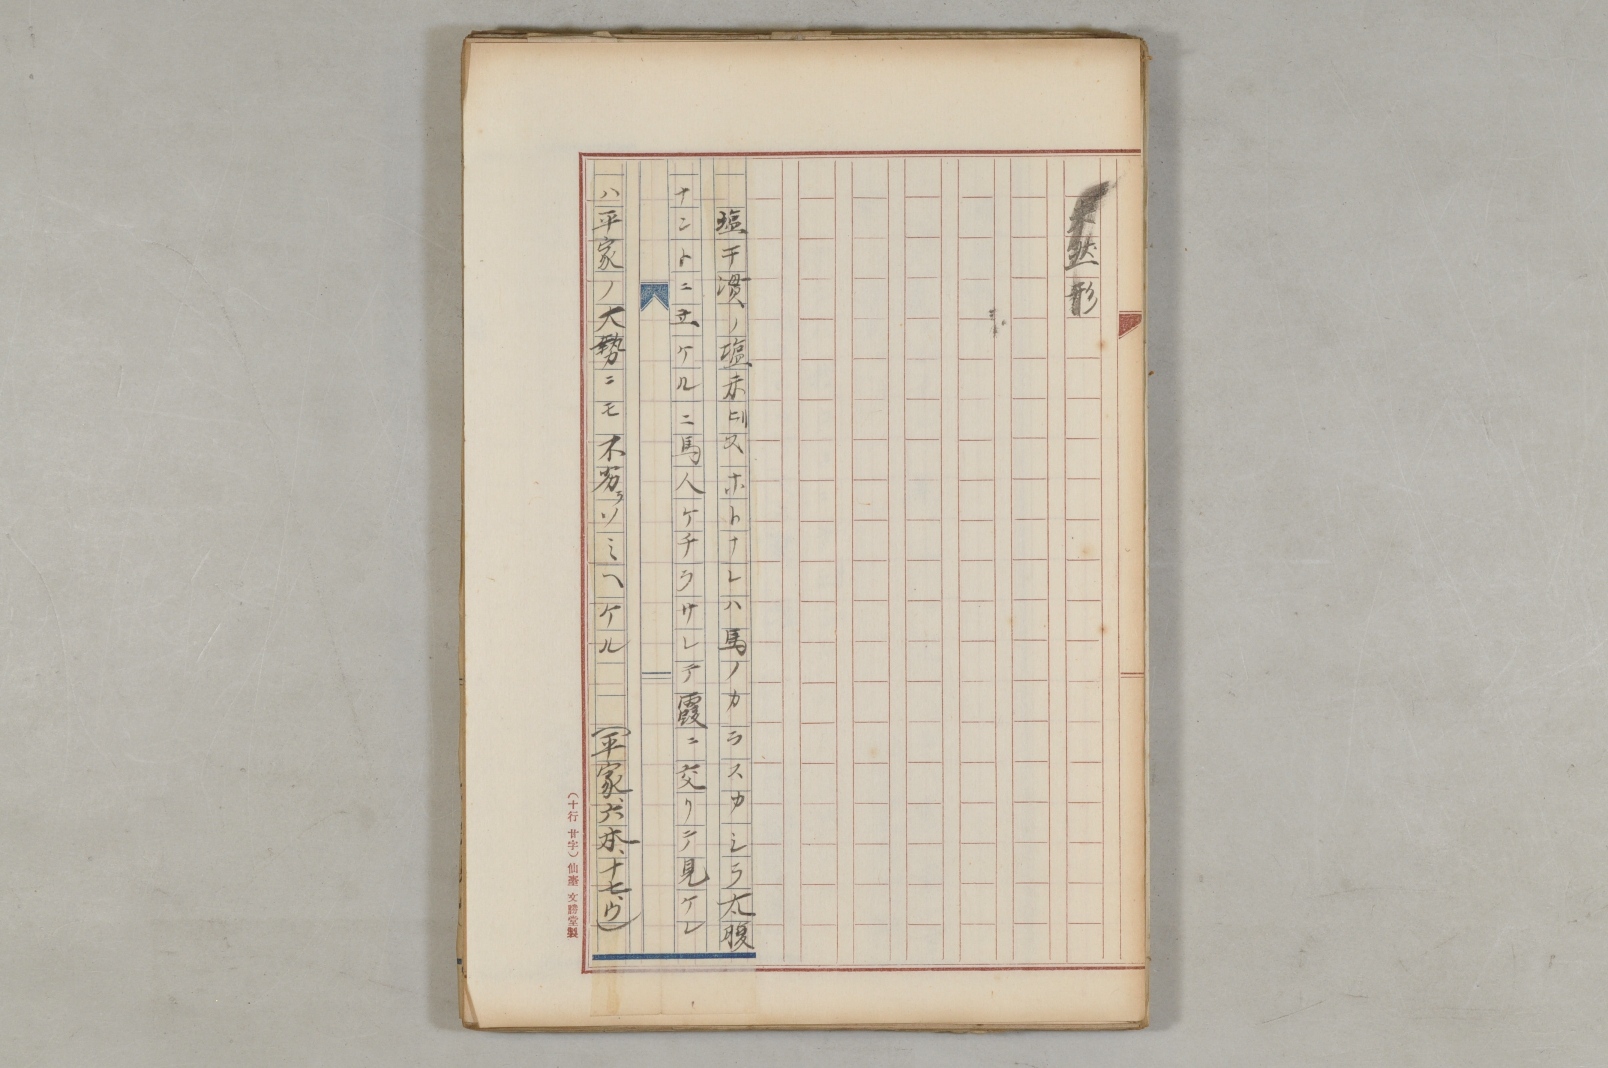 未然形
塩干潟ノ塩未ヒスホトナレハ馬ノカラスカシラ太腹
ナントニ立ケルニ馬人ケチラサレテ霞ニ交リテ見ケレ
ハ平家ノ大勢ニモ不劣ラソミヘケル (平家、六本、十七、ウ)
(十行 廿字) 仙臺 文勝堂製